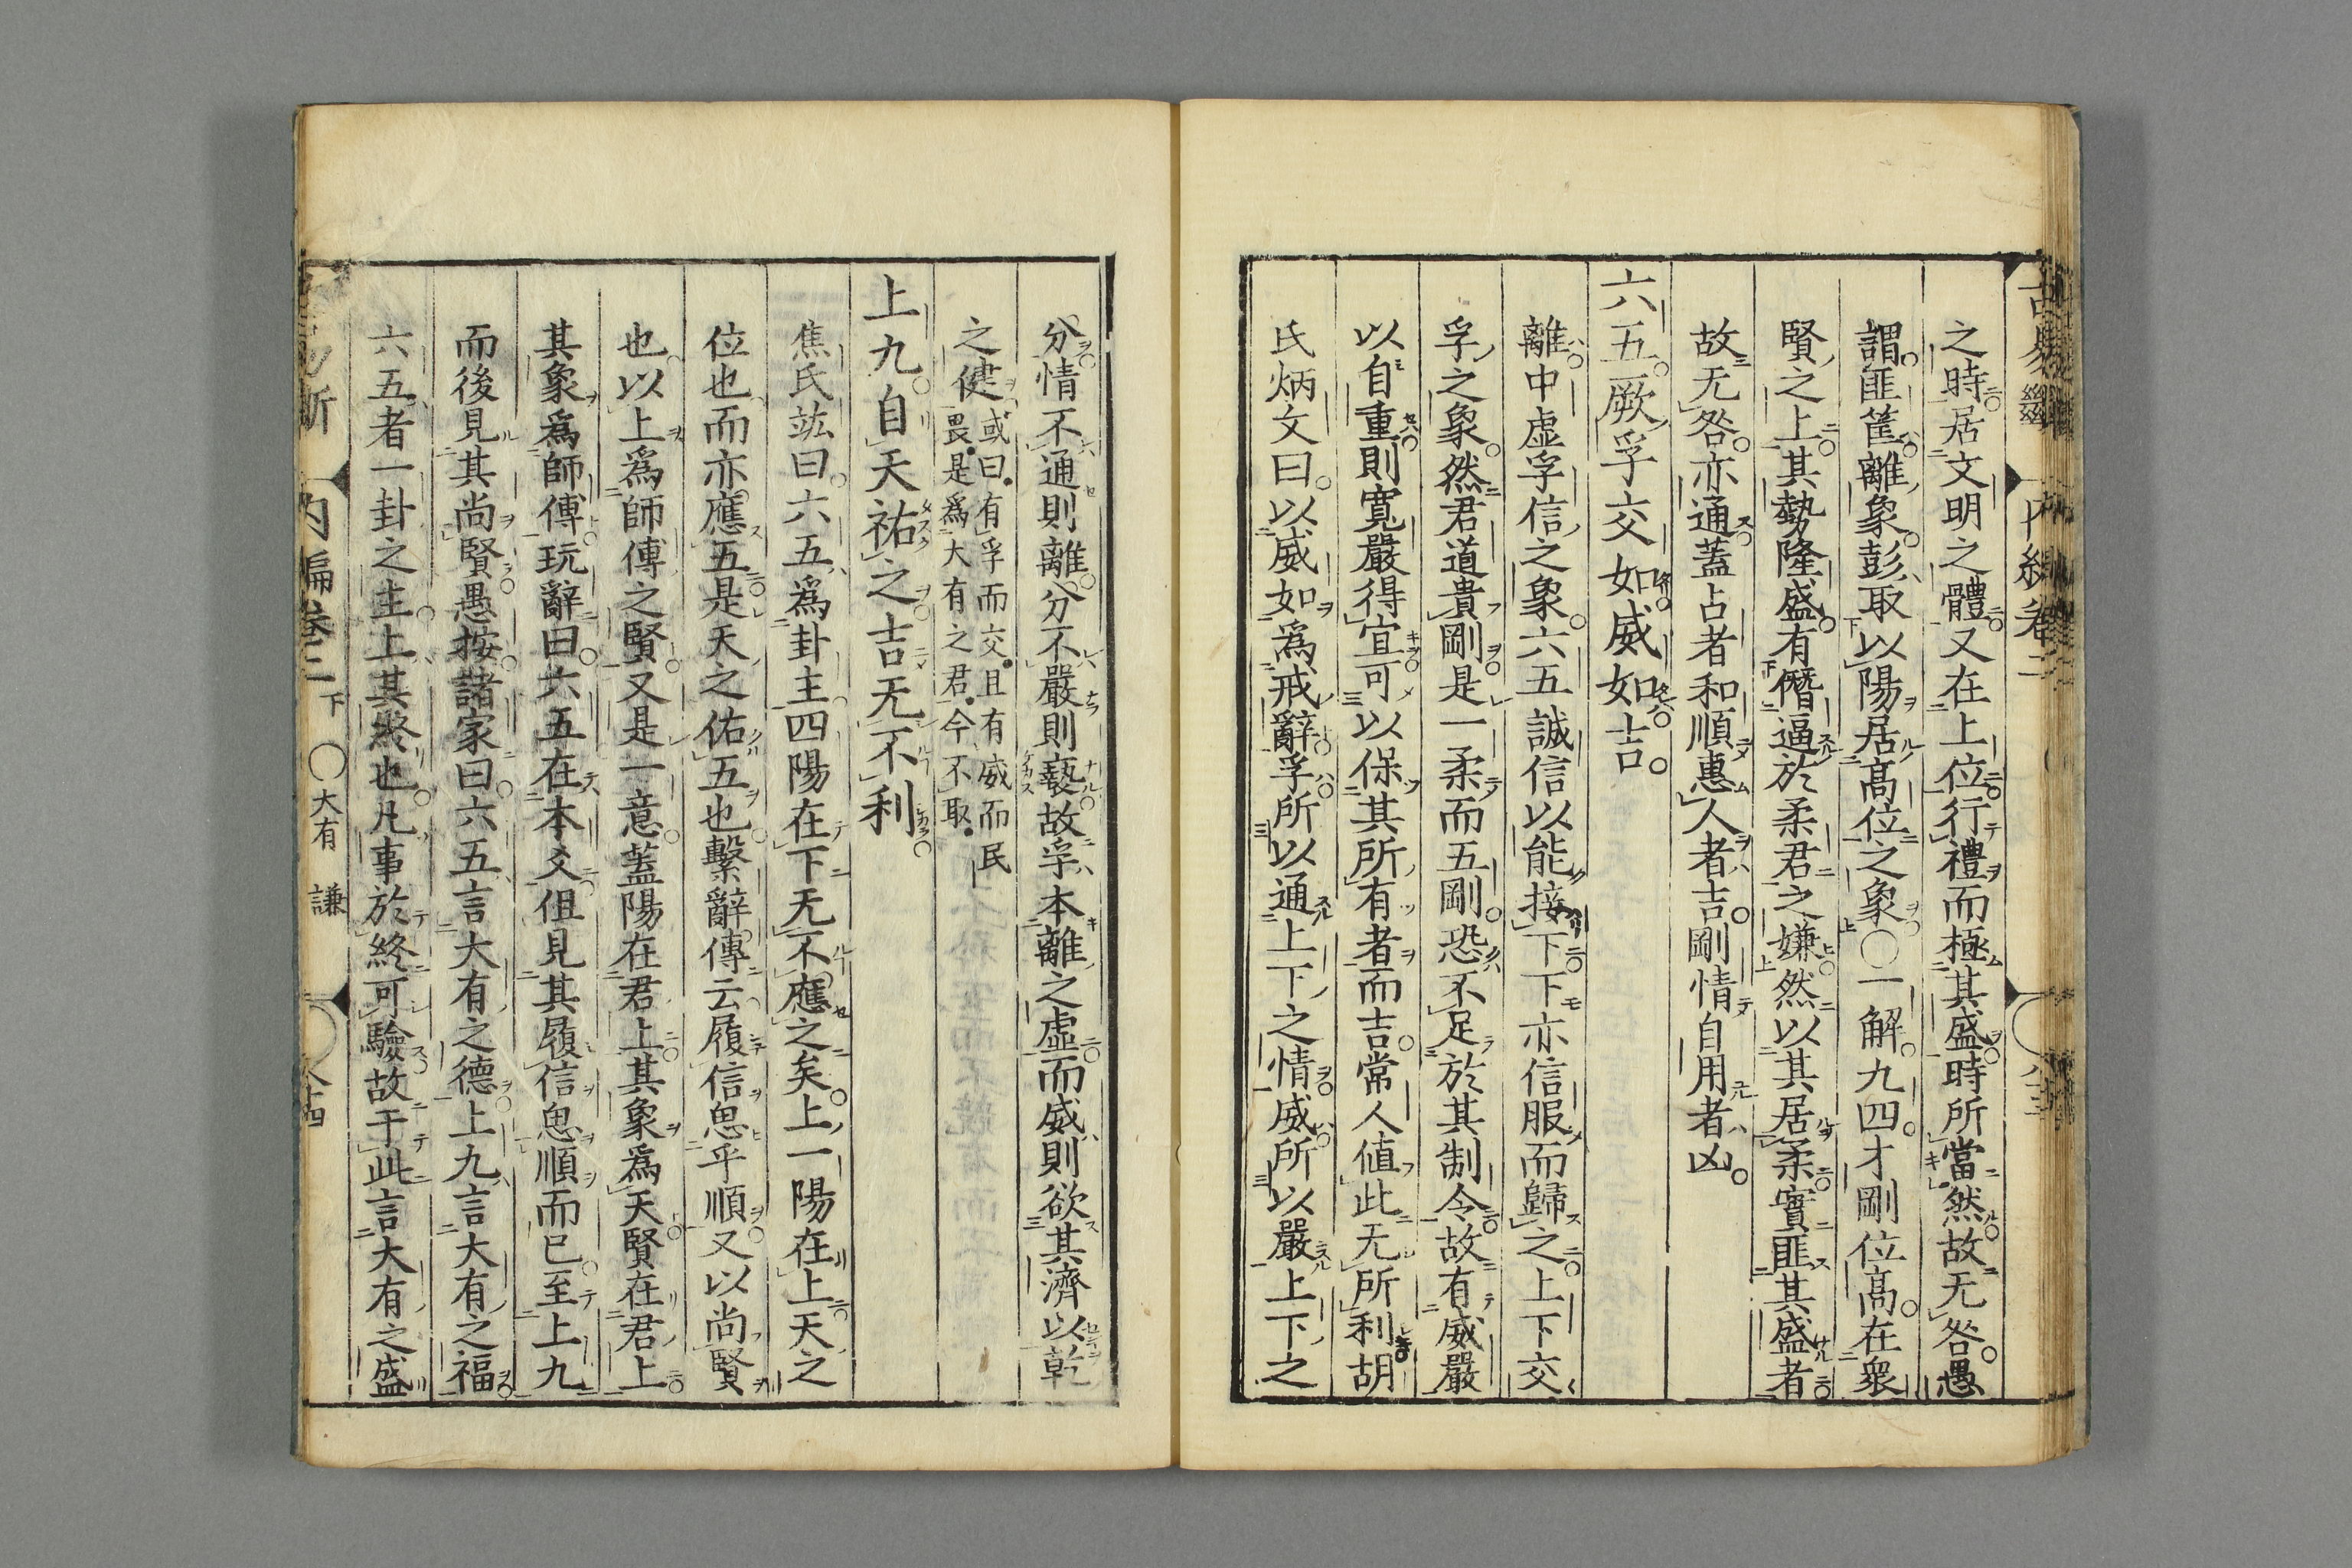 之時居文明之體又在上位行禮而極其盛時所當然故无咎愚
謂匪筐離象彭取以陽居高位之象○一解九四才剛位高在衆
賢之上其勢隆盛有僭逼於柔君之嫌然以其居柔實匪其盛者
故无咎亦通蓋占者和順惠人者吉剛情自用者凶
六五厥孚交如威如吉
離中虛孚信之象六五誠信以能接下下亦信服而歸之上下交
孚之象然君道貴剛是一柔而五剛恐不足於其制令故有威嚴
以自重則寬嚴得宜可以保其所有者而吉常人値此无所利胡
氏炳文曰以威如爲戒辭孚所以通上下之情威所以嚴上下之
分情不通則離分不嚴則褻故孚本離之虛而威則欲其濟以乾
之健或曰有孚而交且有威而民
畏是爲大有之君今不取
上九自天祐之吉无不利
焦氏竑曰六五爲卦主四陽在下无不應之矣上一陽在上天之
位也而亦應五是天之佑五也繫辭傳云履信思乎順又以尚賢
也以上爲師傅之賢又是一意蓋陽在君上其象爲天賢在君上
其象爲師傅玩辭曰六五在本爻但見其履信思順而已至上九
而後見其尚賢愚按諸家曰六五言大有之德上九言大有之福
六五者一卦之主上其終也凡事於終可驗故于此言大有之盛
斷 内編卷二下 ○大有 謙